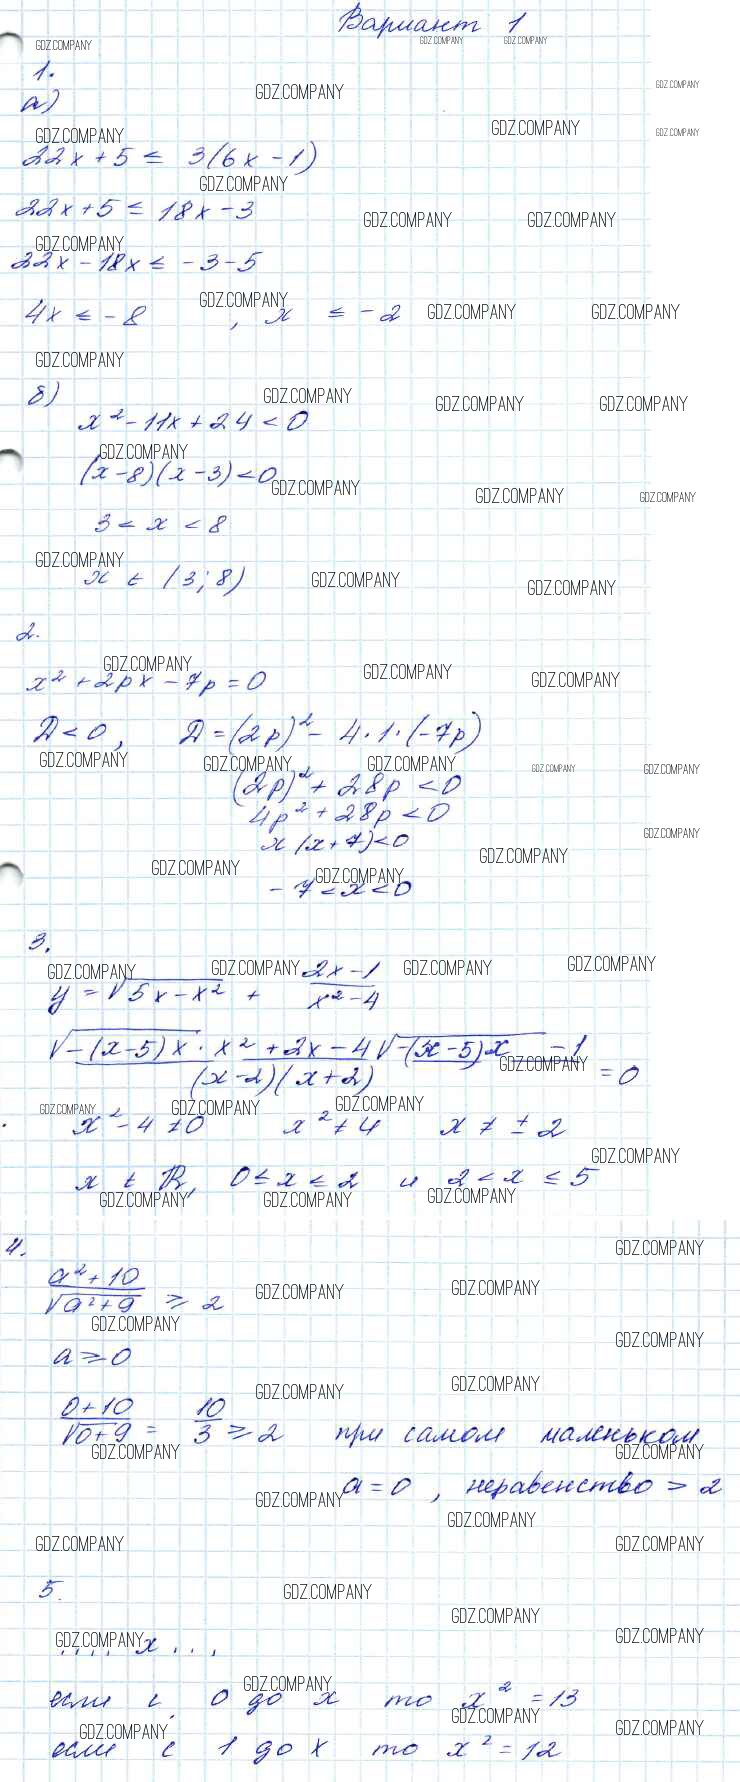 Вариант 1
1.
а)
22x + 5 ≤ 3(6x - 1)
22x + 5 ≤ 18x - 3
22x - 18x ≤ -3 - 5
4x ≤ -8 , x ≤ -2
б)
x² - 11x + 24 < 0
(x - 8)(x - 3) < 0
3 < x < 8
x ∈ (3; 8)
2.
x² + 2px - 7p = 0
D < 0, D = (2p)² - 4·1·(-7p)
(2p)² + 28p < 0
4p² + 28p < 0
x(x + 7) < 0
-7 < x < 0
3.
y = √(5x - x²) + (2x - 1)/(x² - 4)
(√(-(x - 5)x) · x² + 2x - 4√(-(x - 5)x) - 1)/((x - 2)(x + 2)) = 0
x² - 4 ≠ 0 x² ≠ 4 x ≠ ± 2
x ∈ R, 0 ≤ x ≤ 2 и 2 < x ≤ 5
4.
(a² + 10)/√(a² + 9) ≥ 2
a ≥ 0
(0 + 10)/√(0 + 9) = 10/3 ≥ 2 при самом маленьком
a = 0 , неравенство > 2
5.
.... x ...
если с 0 до x то x² = 13
если с 1 до x то x² = 12
GDZ.COMPANY